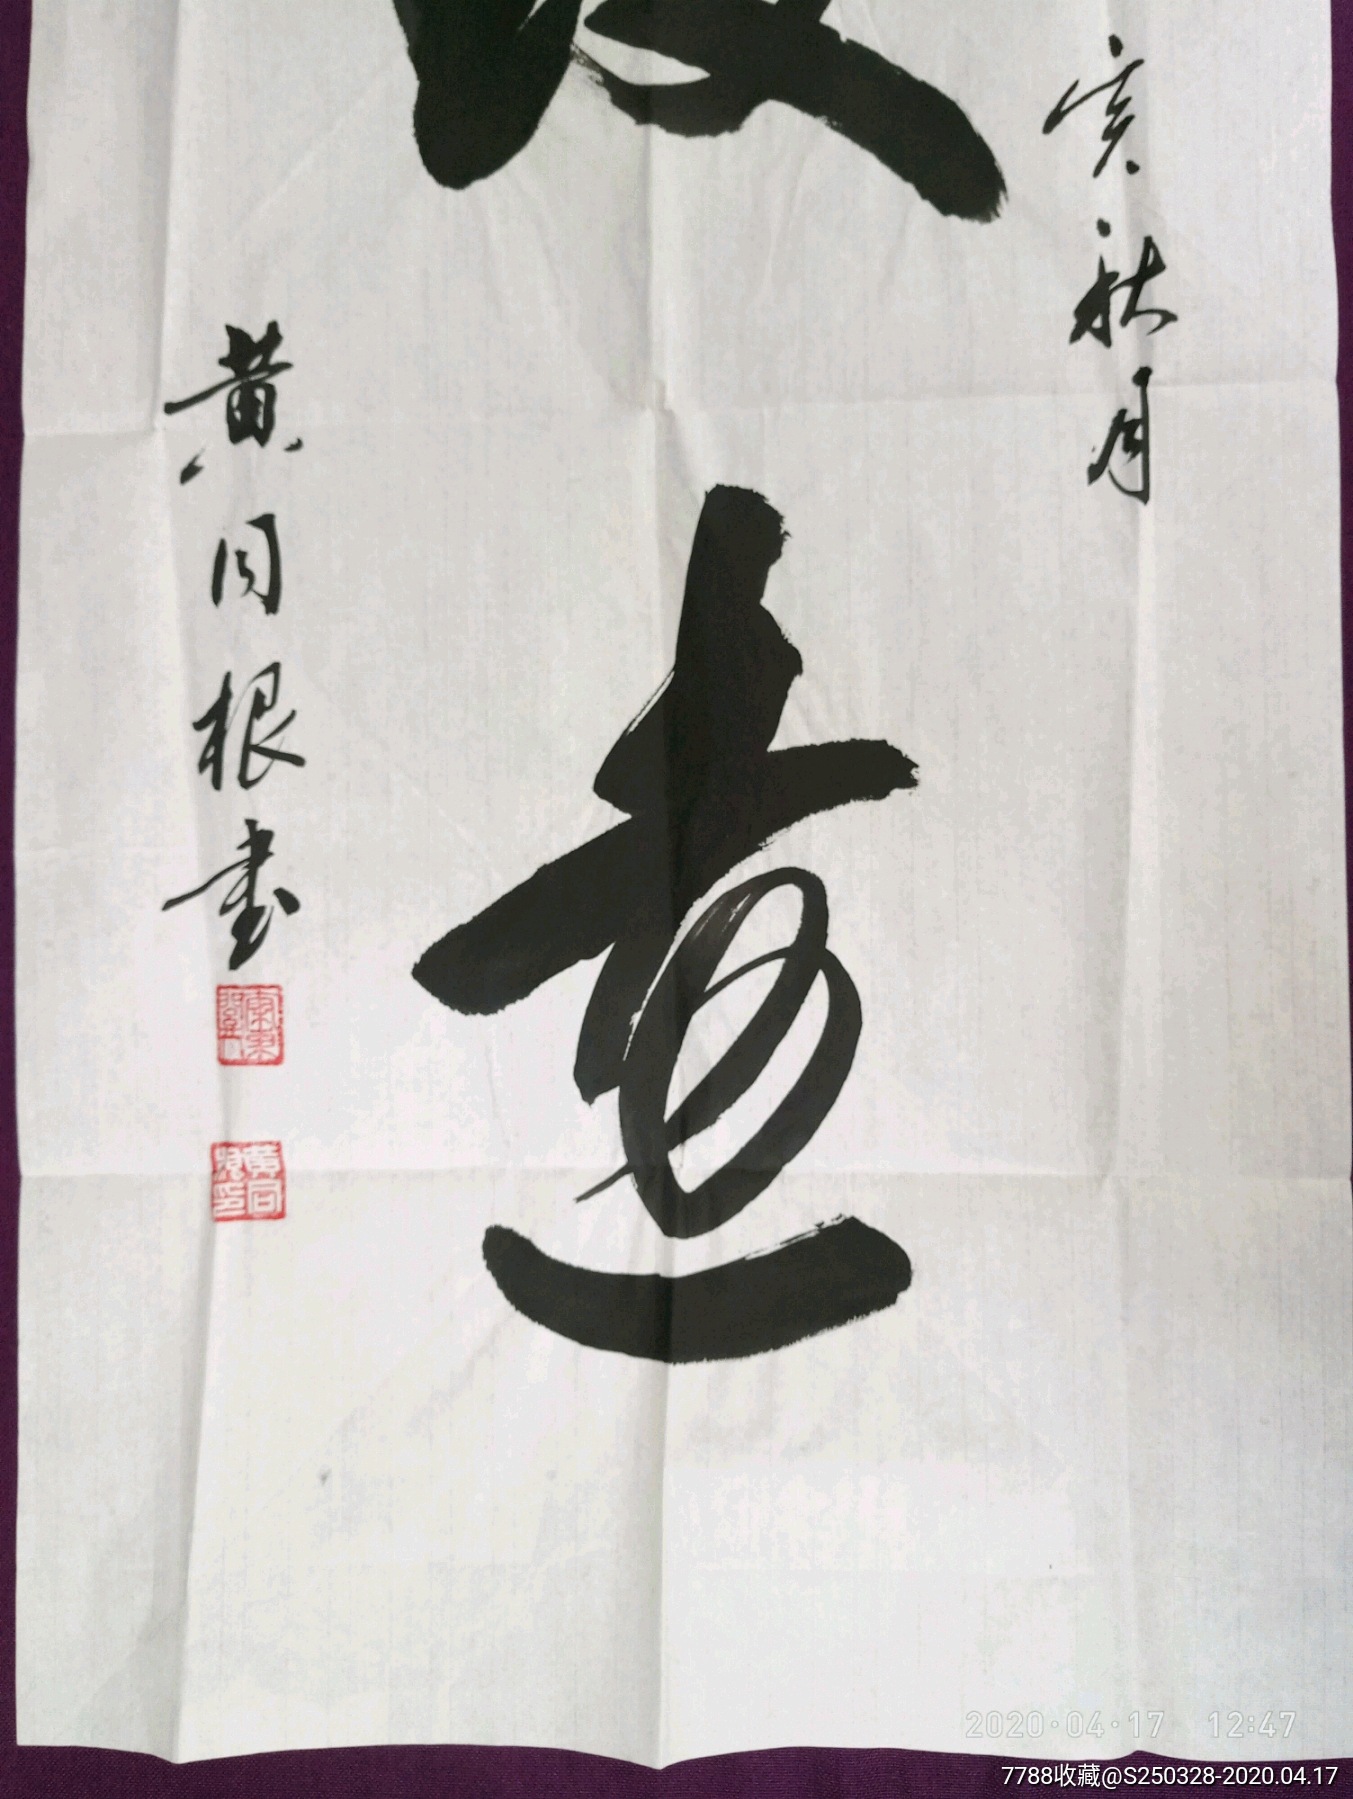 亥秋月
遠
黄同根書
黄同根印
2020·04·17 12:47
7788收藏@S250328-2020.04.17